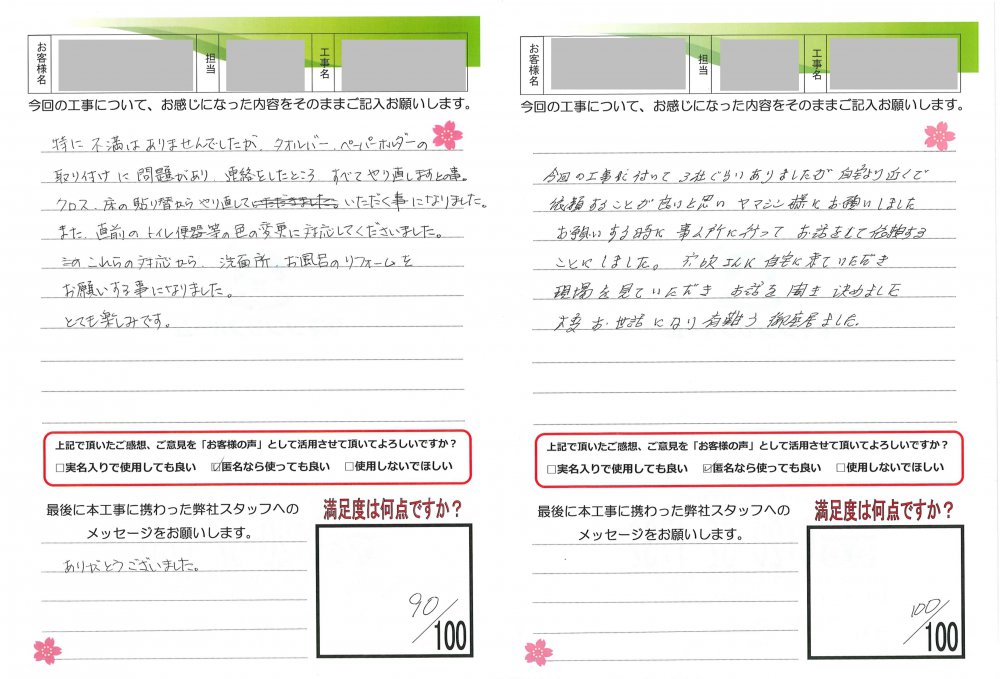 お客様名
担当
工事名
今回の工事について、お感じになった内容をそのままご記入お願いします。
特に不満はありませんでしたが、タオルバー、ペーパーホルダーの
取り付けに問題があり、連絡をしたところ すべてやり直しますとの事。
クロス、床の貼り替からやり直していただきました。いただく事になりました。
また、直前のトイレ便器等の色の変更に対応してくださいました。
このこれらの対応から、洗面所、お風呂のリフォームを
お願いする事になりました。
とても楽しみです。
上記で頂いたご感想、ご意見を「お客様の声」として活用させて頂いてよろしいですか？
□実名入りで使用しても良い ☑匿名なら使っても良い □使用しないでほしい
最後に本工事に携わった弊社スタッフへの
メッセージをお願いします。
ありがとうございました。
満足度は何点ですか？
90/100
お客様名
担当
工事名
今回の工事について、お感じになった内容をそのままご記入お願いします。
今回の工事に付って 3社ぐらいありましたが 自宅より近くで
依頼することが良いと思い ヤマシン様にお願いしました
お願いする時に 事ム所に行って お話をして依頼する
ことにしました。 さんに自宅に来ていただき
現場を見ていただき お話を聞き 決めました
大変お世話になり有難う御座居ました。
上記で頂いたご感想、ご意見を「お客様の声」として活用させて頂いてよろしいですか？
□実名入りで使用しても良い ☑匿名なら使っても良い □使用しないでほしい
最後に本工事に携わった弊社スタッフへの
メッセージをお願いします。
満足度は何点ですか？
100/100